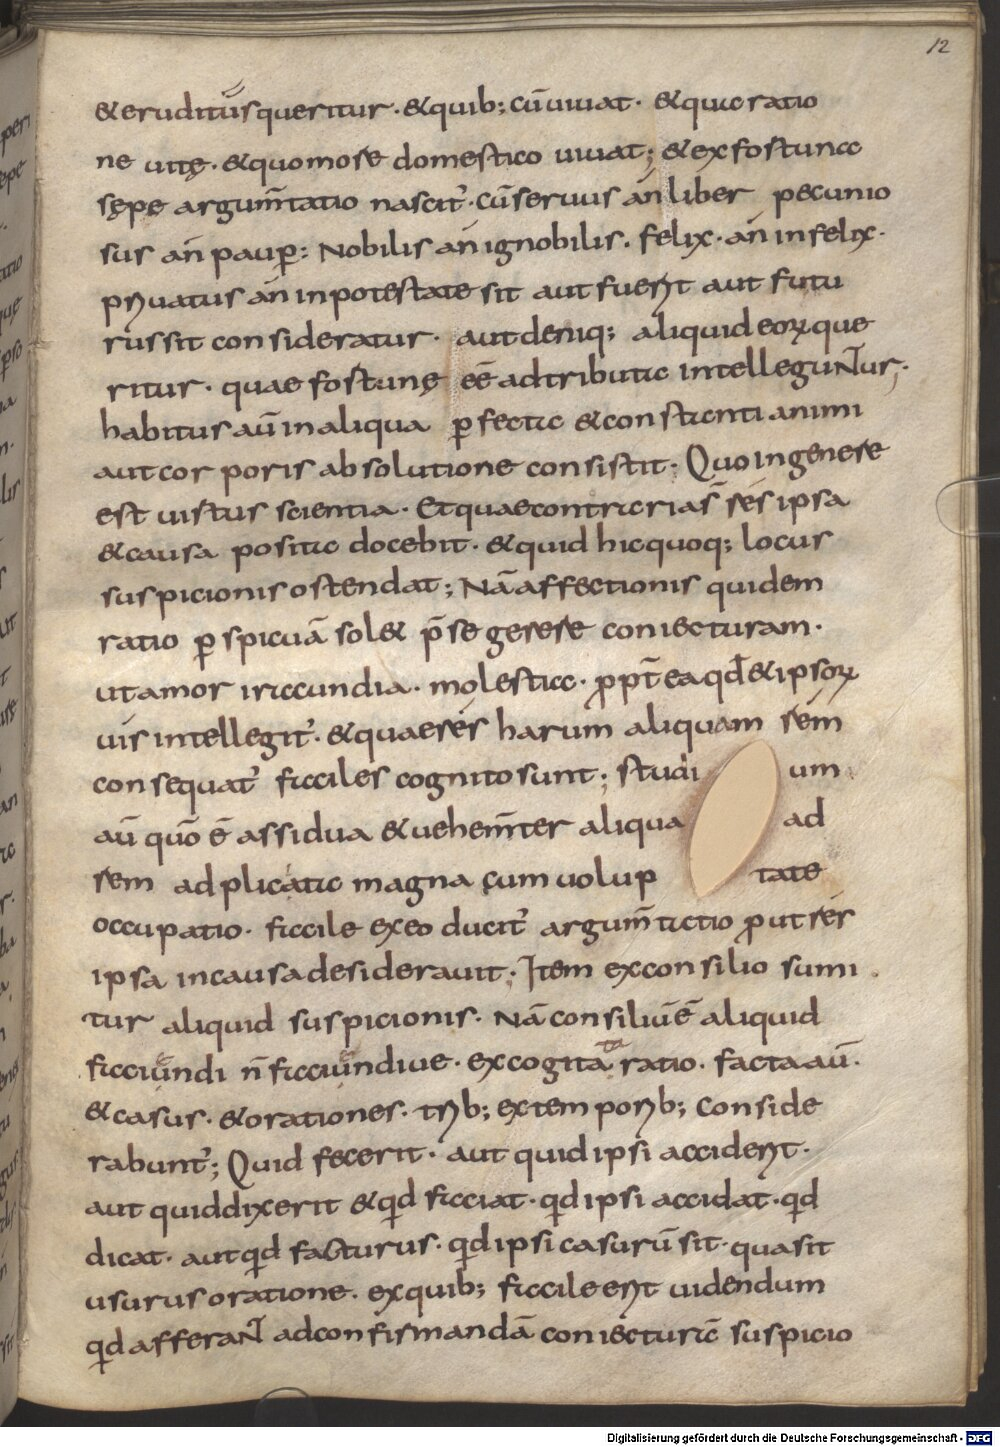 12
&eruditusqueritur · &quib; cūuiuat · &qua ratio
ne uitę · &quomore domestico uiuat; &exfortuna
sępe argum̄tatio nascit᷑ · cū seruus an̄ liber pecunio
sus an̄ paup̱: Nobilis an̄ ignobilis . felix · an̄ infelix ·
priuatus an̄ inpotestate sit aut fuerit aut futu
rus sit consideratur · aut deniq; aliquid eoꝝ que
ritur · quae fortunę eē adtributa intelleguNt̄ur; ·
habitus aū in aliqua ꝑfecta &constanti animi
aut corporis absolutione consistit · Quo in genere
est uirtus scientia · Et quae contraria s̄ rés ipsa
&causa posita docebit · &quid hic quoq; locus
suspicionis ostendat; Nā affectionis quidem
ratio ꝑspicuā sol& p̄ se gerere coniecturam ·
ut amor iracundia · molestia · ꝓpt̄ea qd̄ &ipsoꝝ
uis intellegit᷑ · &quae rés harum aliquam rem
consequat᷑ faciles cognito sunt; studi um
aū quō ē assidua &uehem̄ter aliqua ad
rem adplicata magna cum uolup tate
occupatio · facile ex eo ducit᷑ argum̄tatio ꝓut rés
ipsa in causa desiderauit · Item ex consilio sumi .
tur aliquid suspicionis · Nā consiliū ē aliquid
faciundi n̄ faciundiue · excogitata ratio · facta aū ·
&casus · &orationes · trib; ex temporib; conside
rabunt᷑; Quid fecerit · aut quid ipsi acciderit ·
aut quid dixerit &qd faciat · qd ipsi accidat · qd
dicat · aut qd facturus · qd ipsi casurū sit · qua sit
usurus oratione · ex quib; facile erit uidendum
qd afferaNt᷑ ad confirmandā coniecturā suspicio
Digitalisierung gefördert durch die Deutsche Forschungsgemeinschaft - DFG